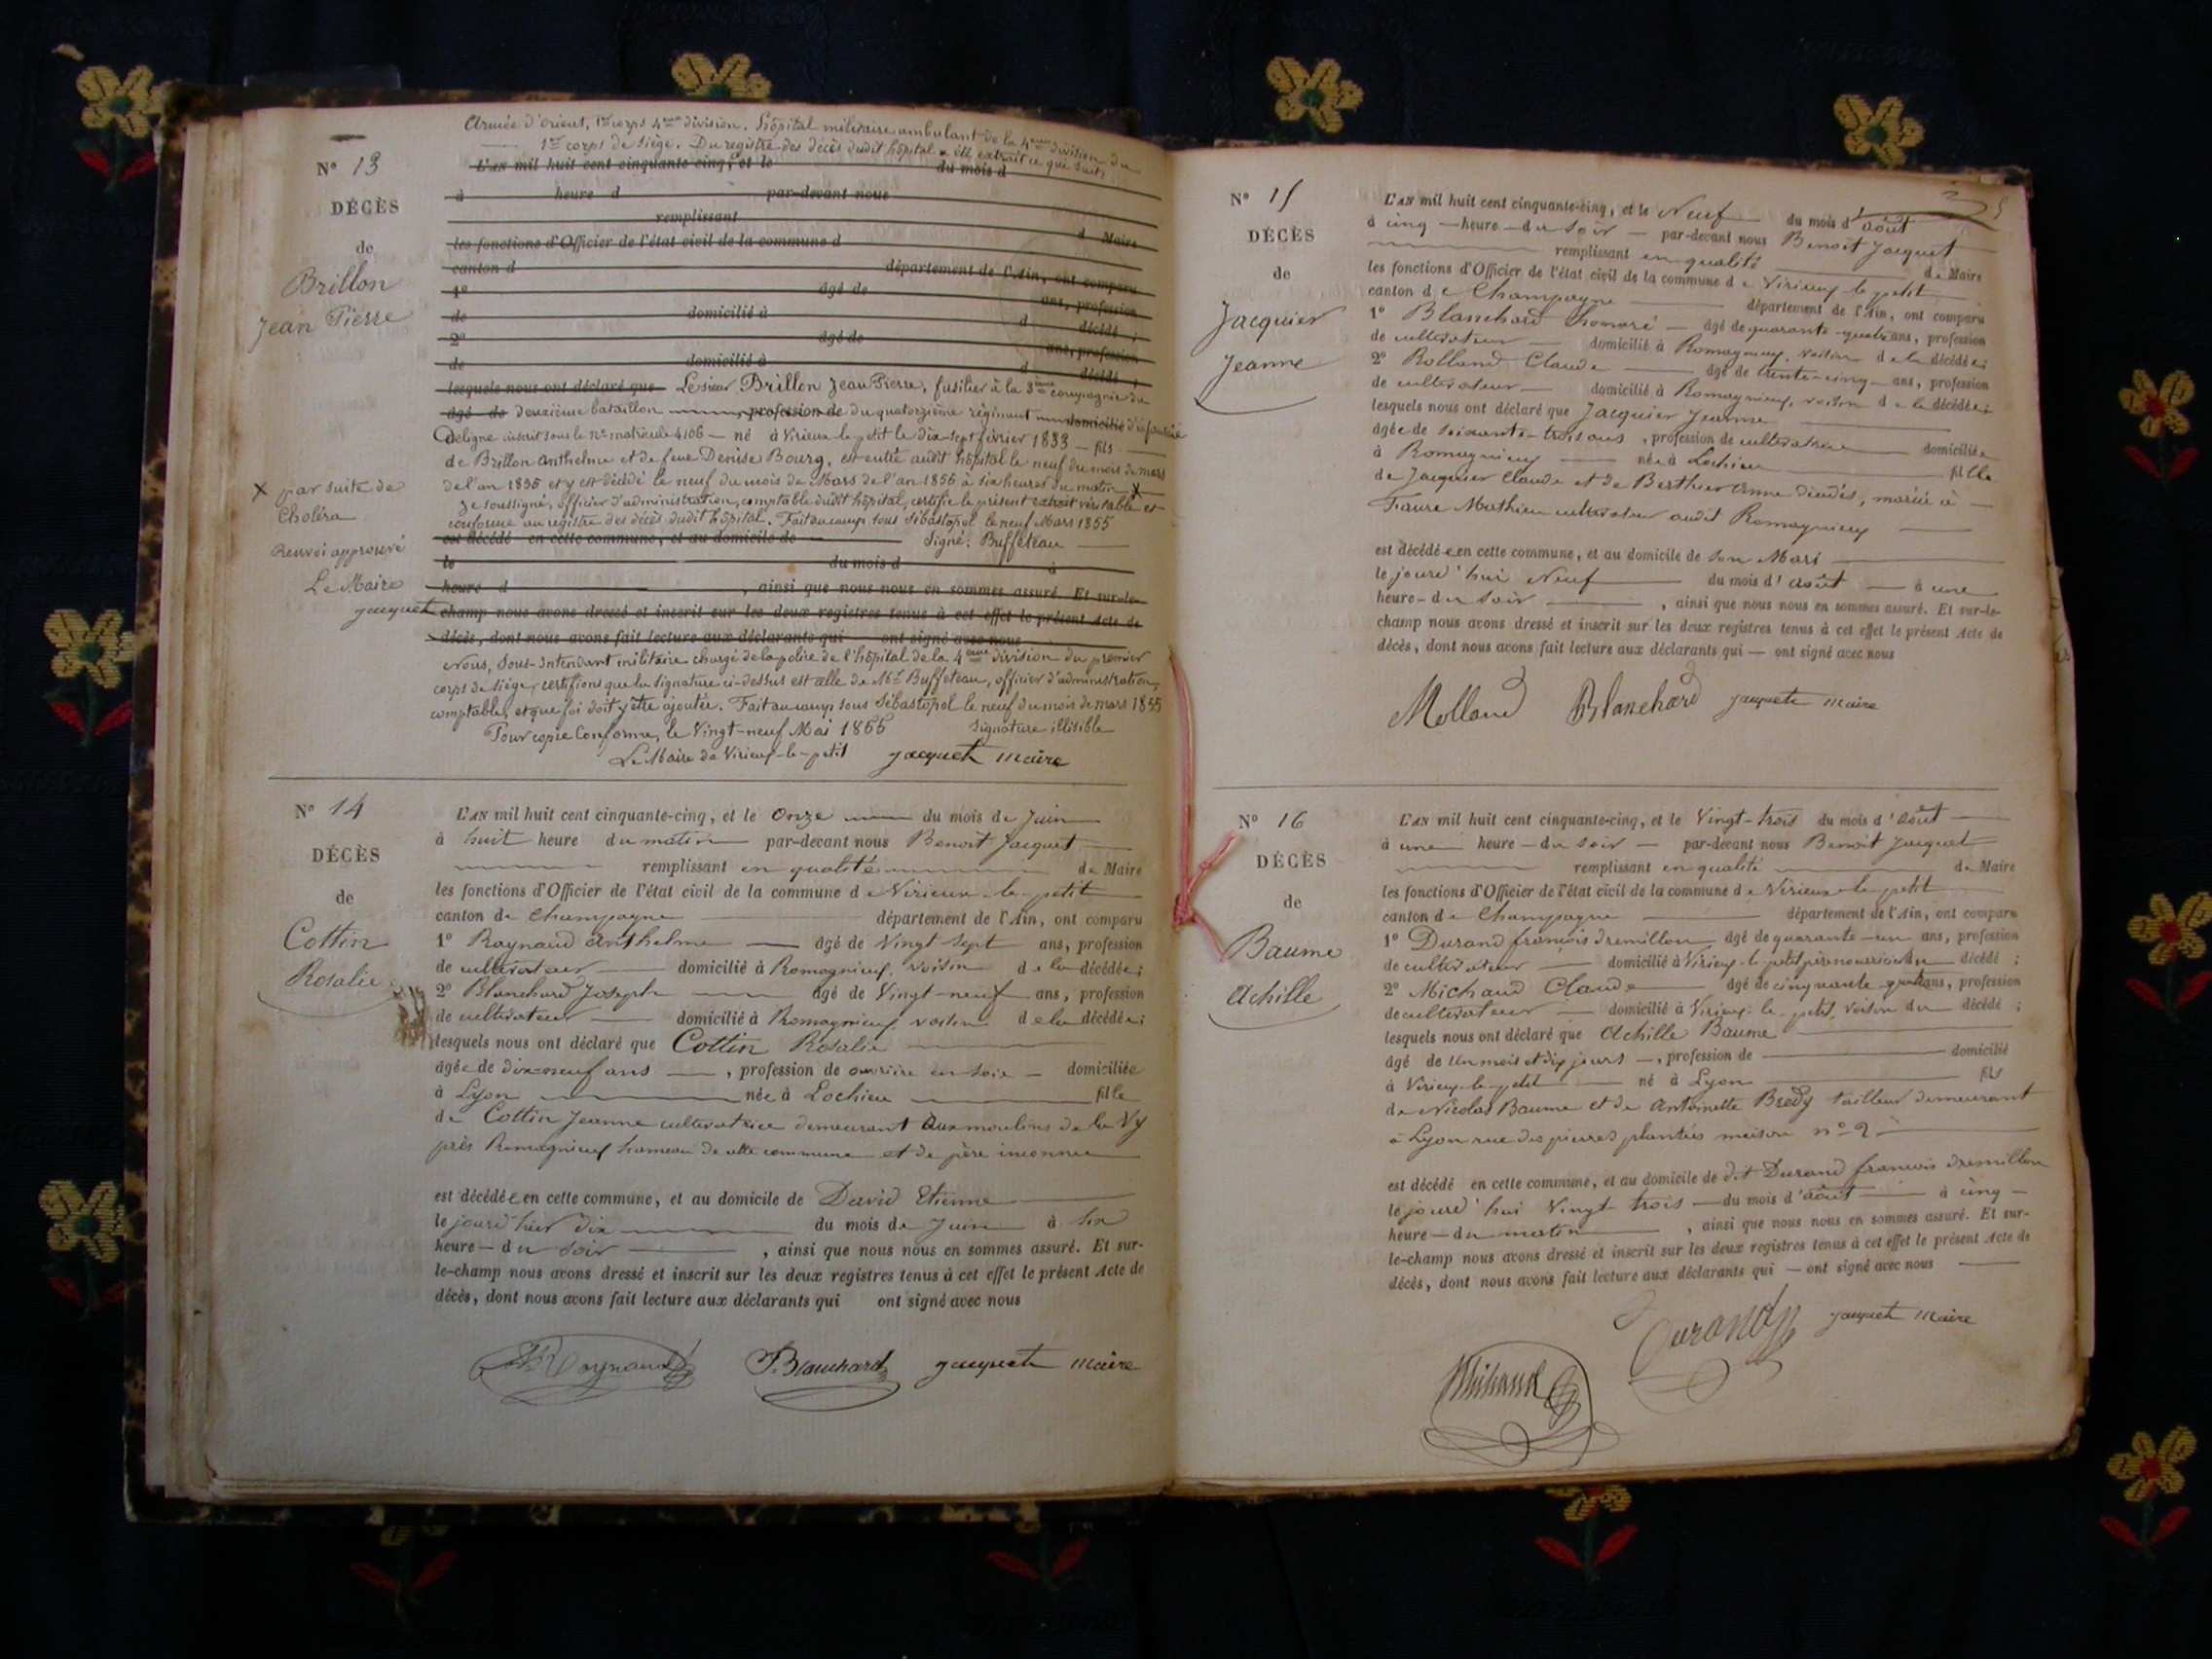 Armée d'orient, 1er corps 4ème division. Hôpital militaire ambulant de la 4ème division du
1er corps de siège. Du registre des décès dudit hôpital a été extrait ce qui suit,
N° 13
L'AN mil huit cent cinquante-cinq, et le du mois d
à heure d par-devant nous
DÉCÈS
remplissant d Maire
de
les fonctions d'Officier de l'état civil de la commune d
canton d département de l'Ain, ont comparu
Brillon
1° âgé de ans, profession
Jean Pierre
de domicilié à d décédé ;
2° âgé de ans, profession
de domicilié à d décédé ;
lesquels nous ont déclaré que Le sieur Brillon Jean Pierre, fusilier à la 3ème compagnie du
âgé de deuxième bataillon profession de du quatorzième régiment domicilié d'infanterie
de ligne inscrit sous le n° matricule 4106 — né à Virieux-le-petit le dix-sept février 1833 — fils
de Brillon Anthelme et de feue Denise Bourg, est entré audit hôpital le neuf du mois de mars
de l'an 1855 et y est décédé le neuf du mois de Mars de l'an 1855 à six heures du matin X
X par suite de
Choléra
Je soussigné, officier d'administration, comptable dudit hôpital, certifie le présent extrait véritable et
conforme au registre des décès dudit hôpital. Fait au camp sous Sébastopol le neuf Mars 1855
est décédé en cette commune, et au domicile de Signé: Buffeteau
Renvoi approuvé
le du mois d à
Le Maire
heure d , ainsi que nous nous en sommes assuré. Et sur-le-
jacquet
champ nous avons dressé et inscrit sur les deux registres tenus à cet effet le présent Acte de
décès, dont nous avons fait lecture aux déclarants qui ont signé avec nous
Nous, Sous-Intendant militaire chargé de la police de l'hôpital de la 4ème division du premier
corps de siège, certifions que la signature ci-dessus est celle de Mr Buffeteau, officier d'administration,
comptable, et que foi doit y être ajoutée. Fait au camp sous Sébastopol le neuf du mois de mars 1855
Pour copie Conforme, le Vingt-neuf Mai 1855 Signature illisible
Le Maire de Virieux-le-petit jacquet maire
N° 14
DÉCÈS
de
Cottin
Rosalie
L'AN mil huit cent cinquante-cinq, et le onze du mois de Juin
à huit heure du matin par-devant nous Benoit Jacquet
remplissant en qualité de Maire
les fonctions d'Officier de l'état civil de la commune de Virieux-le-petit
canton de Champagne département de l'Ain, ont comparu
1° Raynaud Anthelme âgé de Vingt sept ans, profession
de cultivateur domicilié à Romagnieux, voisin de la décédée ;
2° Blanchard Joseph âgé de Vingt-neuf ans, profession
de cultivateur domicilié à Romagnieux voisin de la décédée ;
lesquels nous ont déclaré que Cottin Rosalie
âgée de dix-neuf ans , profession de ouvrière en soie domiciliée
à Lyon née à Lochieu fille
de Cottin Jeanne cultivatrice demeurant aux moulins de la Vy
près Romagnieux hameau de cette commune et de père inconnu
est décédée en cette commune, et au domicile de David Etienne
le jourd'hier dix du mois de Juin à six
heure du soir , ainsi que nous nous en sommes assuré. Et sur-
le-champ nous avons dressé et inscrit sur les deux registres tenus à cet effet le présent Acte de
décès, dont nous avons fait lecture aux déclarants qui ont signé avec nous
Raynaud J. Blanchard jacquet maire
N° 15
DÉCÈS
de
Jacquier
Jeanne
L'AN mil huit cent cinquante-cinq, et le Neuf du mois d'août
à cinq heure du soir par-devant nous Benoit Jacquet
remplissant en qualité de Maire
les fonctions d'Officier de l'état civil de la commune de Virieux-le-petit
canton de Champagne département de l'Ain, ont comparu
1° Blanchard honoré âgé de quarante-quatre ans, profession
de cultivateur domicilié à Romagnieux, voisin de la décédée ;
2° Rolland Claude âgé de trente-cinq ans, profession
de cultivateur domicilié à Romagnieux, voisin de la décédée ;
lesquels nous ont déclaré que Jacquier Jeanne
âgée de soixante-trois ans , profession de cultivatrice domiciliée
à Romagnieux née à Lochieu fille
de Jacquier Claude et de Berthier Anne décédés, mariée à
Faure Mathieu cultivateur audit Romagnieux
est décédée en cette commune, et au domicile de son Mari
le jourd'hui Neuf du mois d'août à une
heure du soir , ainsi que nous nous en sommes assuré. Et sur-le-
champ nous avons dressé et inscrit sur les deux registres tenus à cet effet le présent Acte de
décès, dont nous avons fait lecture aux déclarants qui ont signé avec nous
Rolland Blanchard jacquet maire
N° 16
DÉCÈS
de
Baume
Achille
L'AN mil huit cent cinquante-cinq, et le Vingt-trois du mois d'août
à une heure du soir par-devant nous Benoit Jacquet
remplissant en qualité de Maire
les fonctions d'Officier de l'état civil de la commune de Virieux-le-petit
canton de Champagne département de l'Ain, ont comparu
1° Durand françois dremillon âgé de quarante-un ans, profession
de cultivateur domicilié à Virieux-le-petit père nourricier du décédé ;
2° Michaud Claude âgé de cinquante-quatre ans, profession
de cultivateur domicilié à Virieux-le-petit, voisin du décédé ;
lesquels nous ont déclaré que Achille Baume
âgé de un mois et dix jours , profession de domicilié
à Virieux-le-petit né à Lyon fils
de Nicolas Baume et de Antoinette Bredy tailleur demeurant
à Lyon rue des pierres plantées maison n° 2
est décédé en cette commune, et au domicile de dit Durand francois dremillon
le jourd'hui Vingt-trois du mois d'août à cinq
heure du matin , ainsi que nous nous en sommes assuré. Et sur-
le-champ nous avons dressé et inscrit sur les deux registres tenus à cet effet le présent Acte de
décès, dont nous avons fait lecture aux déclarants qui ont signé avec nous
Durand jacquet maire
Michaud